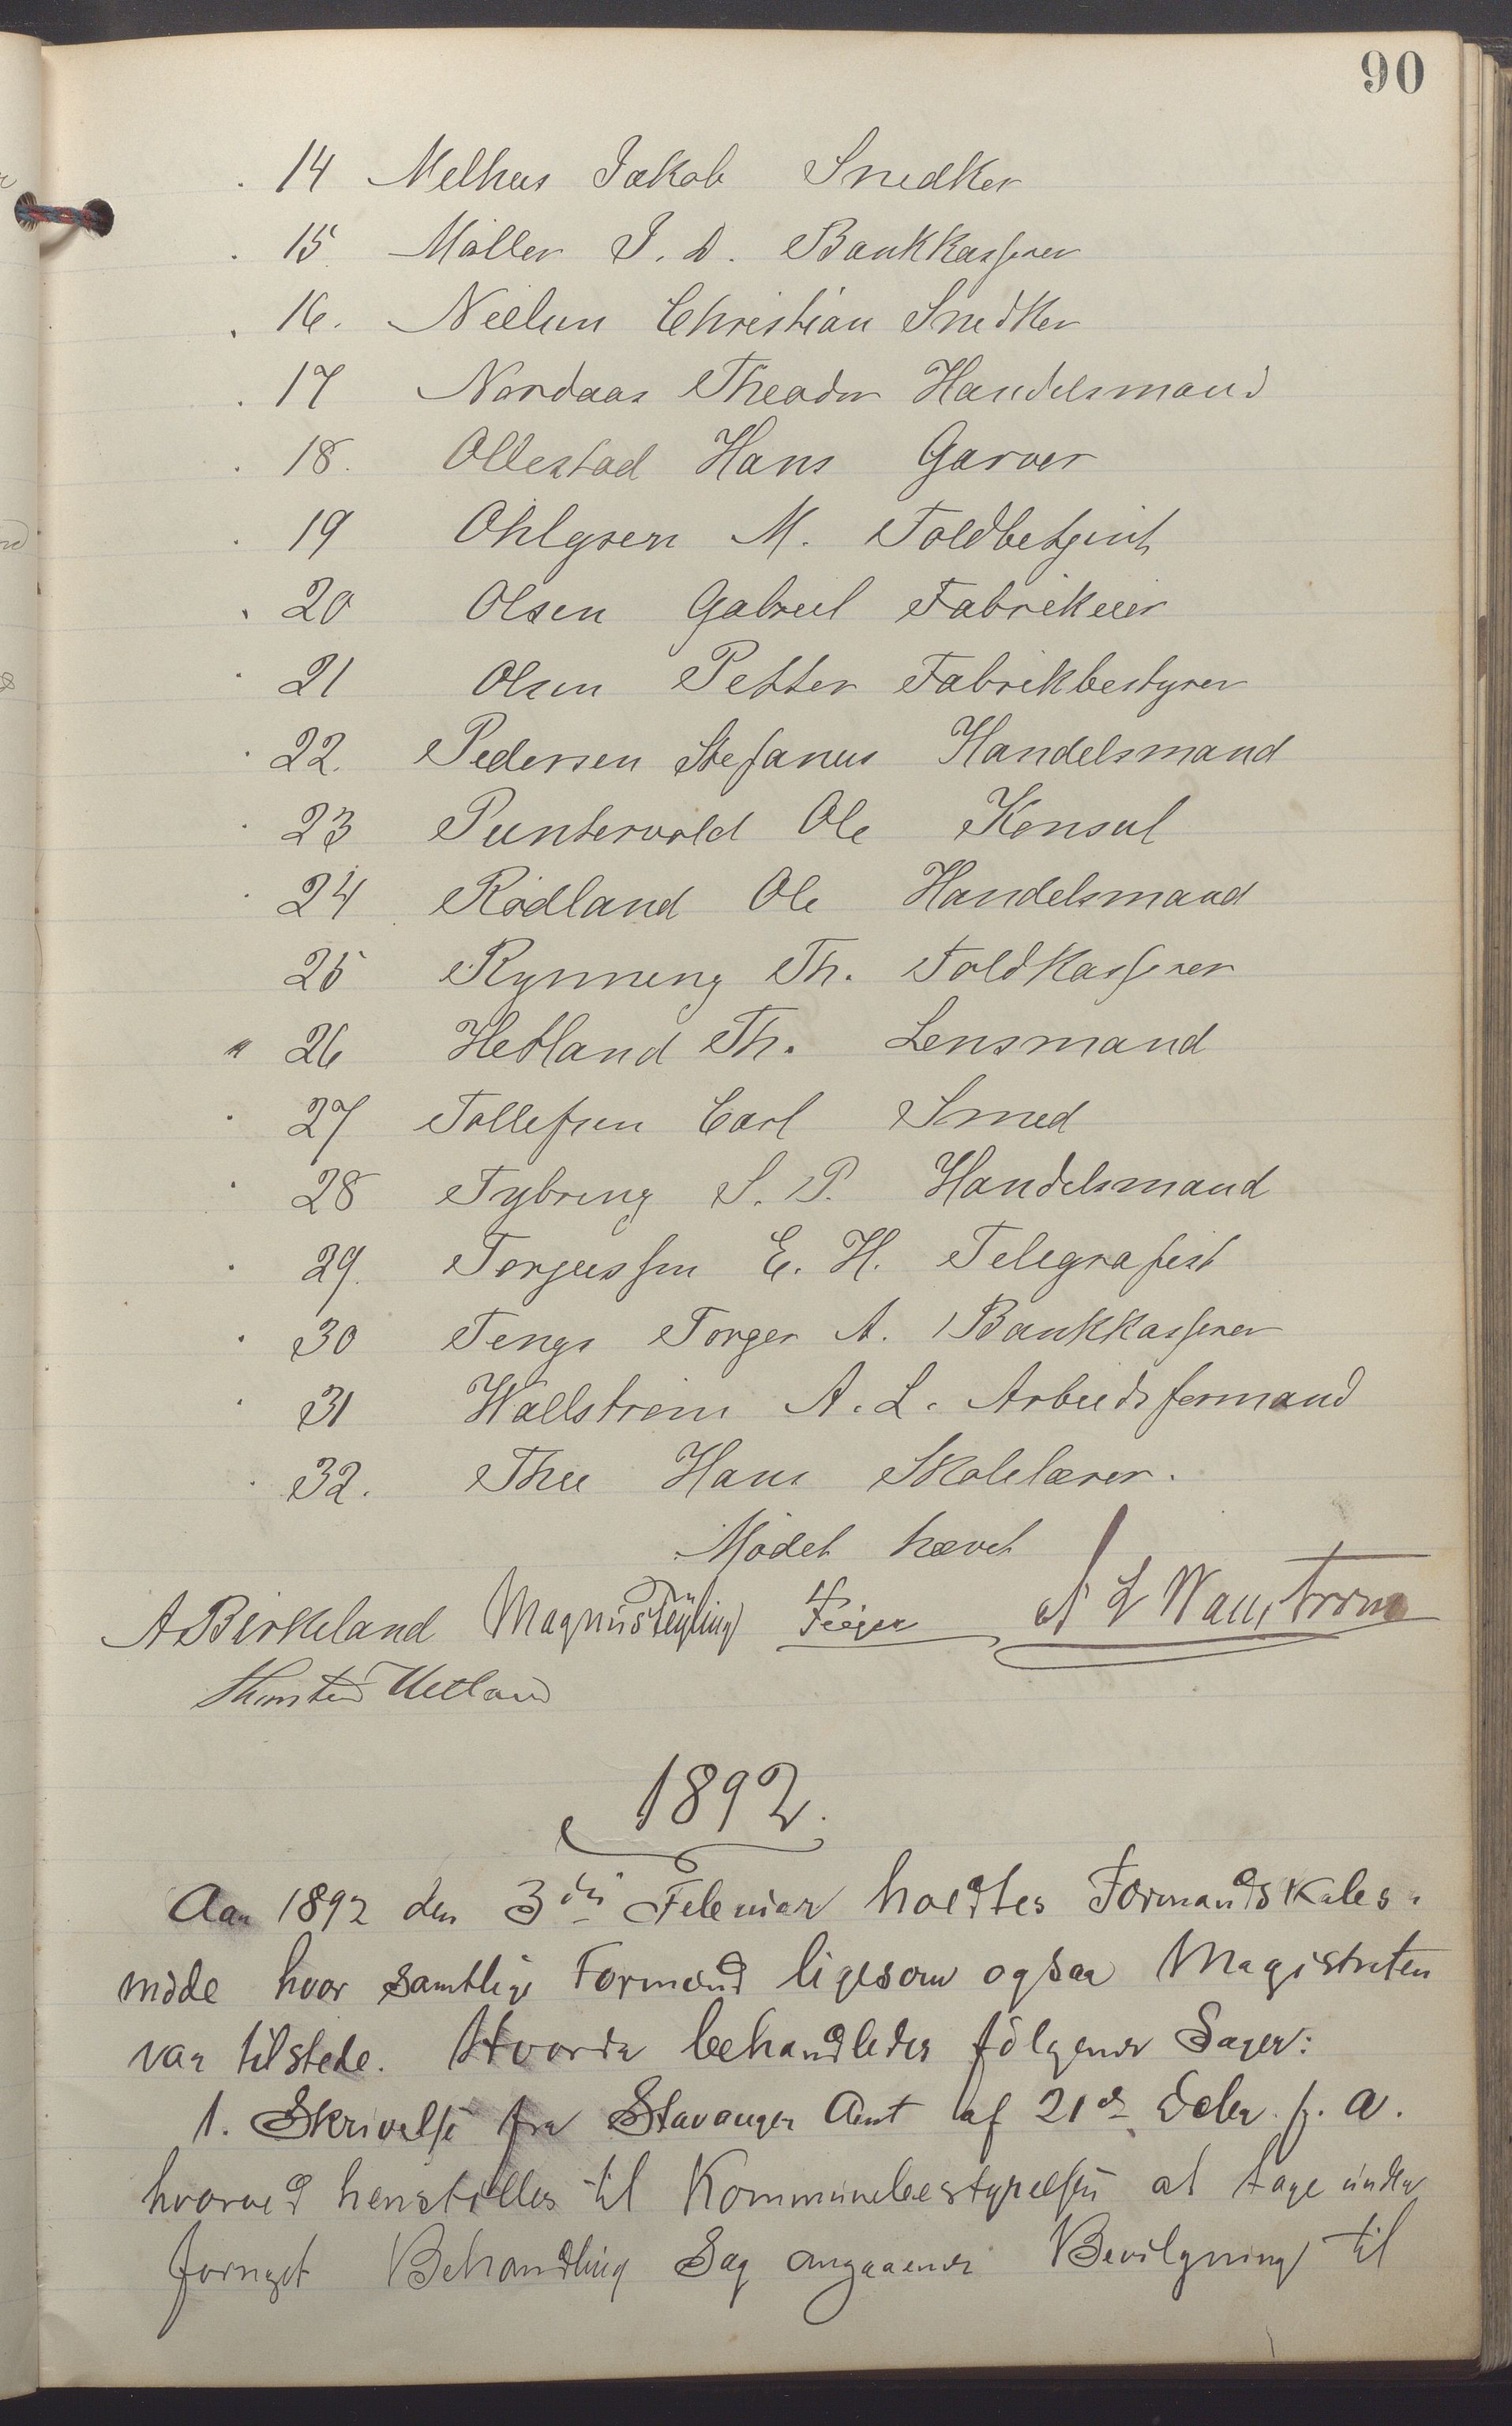 90
14 Melhus Jakob Snedker
15 Møller I. D. Bankkasserer
16. Neelun Christian Snedker
17 Nordaas Theodor Handelsmand
18. Ollestad Hans Garver
19 Ohlgsen M. Toldbetjent
20 Olsen Gabriel Fabrikeier
21 Olsen Petter Fabrikbestyrer
22. Pedersen Stefanus Handelsmand
23 Puntervold Ole Konsul
24 Rødland Ole Handelsmand
25 Rynning Th. Toldkasserer
" 26 Hetland Th. Lensmand
27 Tollefsen Carl Smed
28 Tybring S. P. Handelsmand
29. Torjussen E. H. Telegrafist
30 Tengs Torger A. Bankkasserer
31 Wallstrøm A. L. Arbeidsformand
32. Thu Hans Skolelærer.
Mødet hævet
A Birkeland Magnus Feyling Feyer A L Wallstrøm
Thorsten Hetland
1892.
Aar 1892 den 3die Februar holdtes Formandskabs-
møde hvor samtlige Formænd ligesom ogsaa Magistraten
var tilstede. Hvorda behandledes følgende Sager:
1. Skrivelse fra Stavanger Amt af 21de Decbr. f. A.
hvorved henstilles til Kommunebestyrelsen at tage under
fornyet Behandling Sag angaaende Bevilgning til